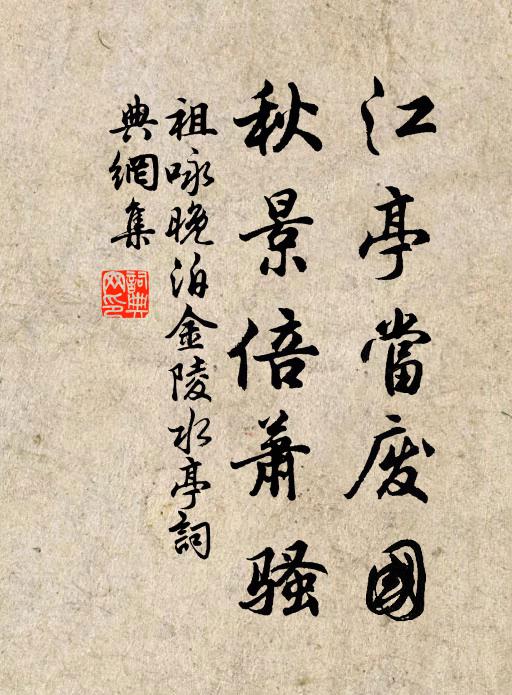 江亭當废國
秋景倍萧骚
祖咏晚泊金陵水亭詞
典網集
詞典
网印